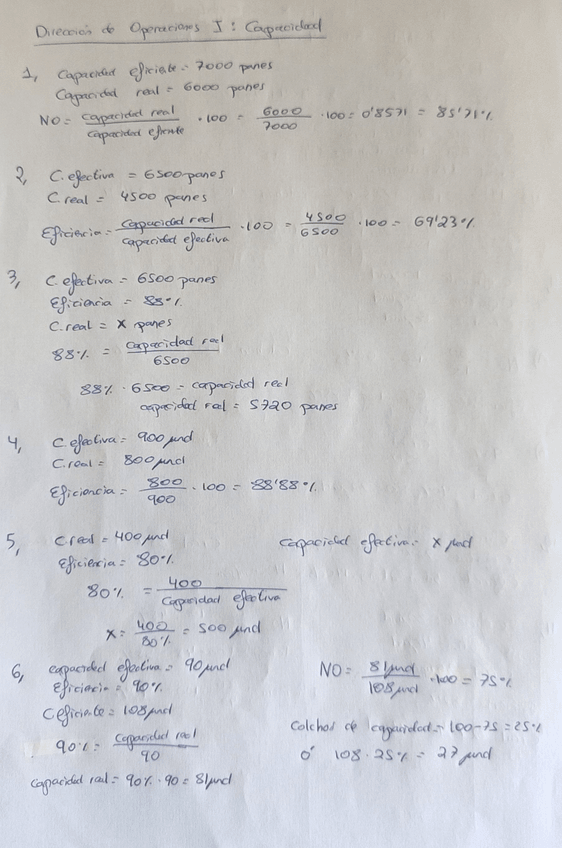 Dirección de Operaciones I: Capacidad
1, Capacidad eficiente = 7000 panes
Capacidad real = 6000 panes
NO = Capacidad real / Capacidad efiente · 100 = 6000 / 7000 · 100 = 0'8571 = 85'71%
2, C. efectiva = 6500 panes
C. real = 4500 panes
Eficiencia = Capacidad real / Capacidad efectiva · 100 = 4500 / 6500 · 100 = 69'23%
3, C. efectiva = 6500 panes
Eficiencia = 88%
C. real = x panes
88% = Capacidad real / 6500
88% · 6500 = capacidad real
capacidad real = 5720 panes
4, C. efectiva = 900 und
C. real = 800 und
Eficiencia = 800 / 900 · 100 = 88'88%
5, C real = 400 und capacidad efectiva = x und
Eficiencia = 80%
80% = 400 / Capacidad efectiva
x = 400 / 80% = 500 und
6, capacidad efectiva = 90 und
Eficiencia = 90%
C eficiente = 108 und
90% = Capacidad real / 90
capacidad real = 90% · 90 = 81 und
NO = 81 und / 108 und · 100 = 75%
Colchon de capacidad = 100-75 = 25%
ó 108 · 25% = 27 und